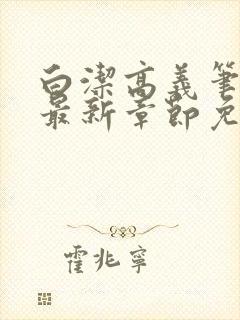 白潔高義筆
最新章節免
霍兆寧